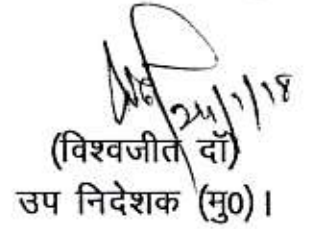 24/1/18
(विश्वजीत दाॅ)
उप निदेशक (मु0)।